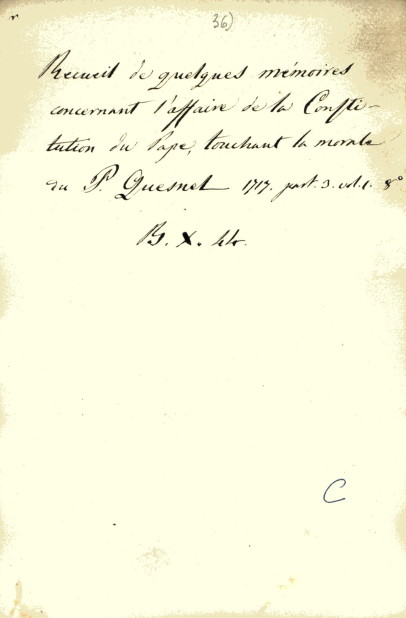 36)
Recueil de quelques mémoires
concernant l'affaire de la Consti-
tution du Pape, touchant la morale
du P. Quesnel 1717. part. 3. vol. 1. 8°
B. X.
C